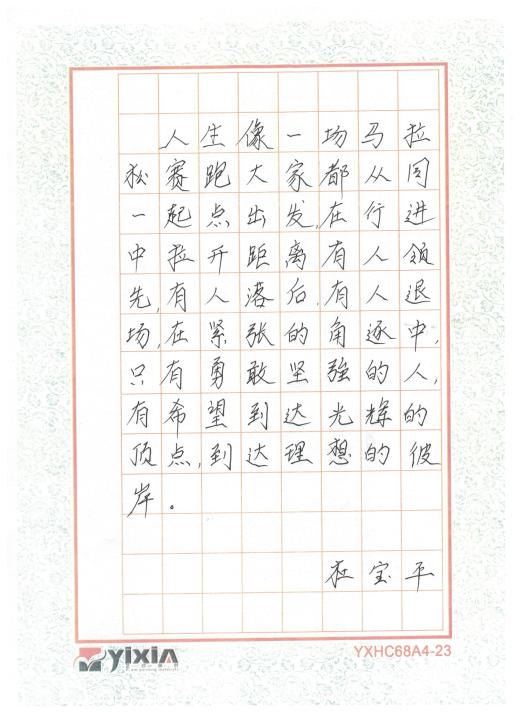 人生像一场马拉
松赛跑大家都从同
一起点出发,在行进
中拉开距离有人领
先,有人落后,有人退
场,在紧张的角逐中,
只有勇敢坚强的人,
有希望到达光辉的
顶点,到达理想的彼
岸。
杜宝平
yixin
YXHC68A4-23